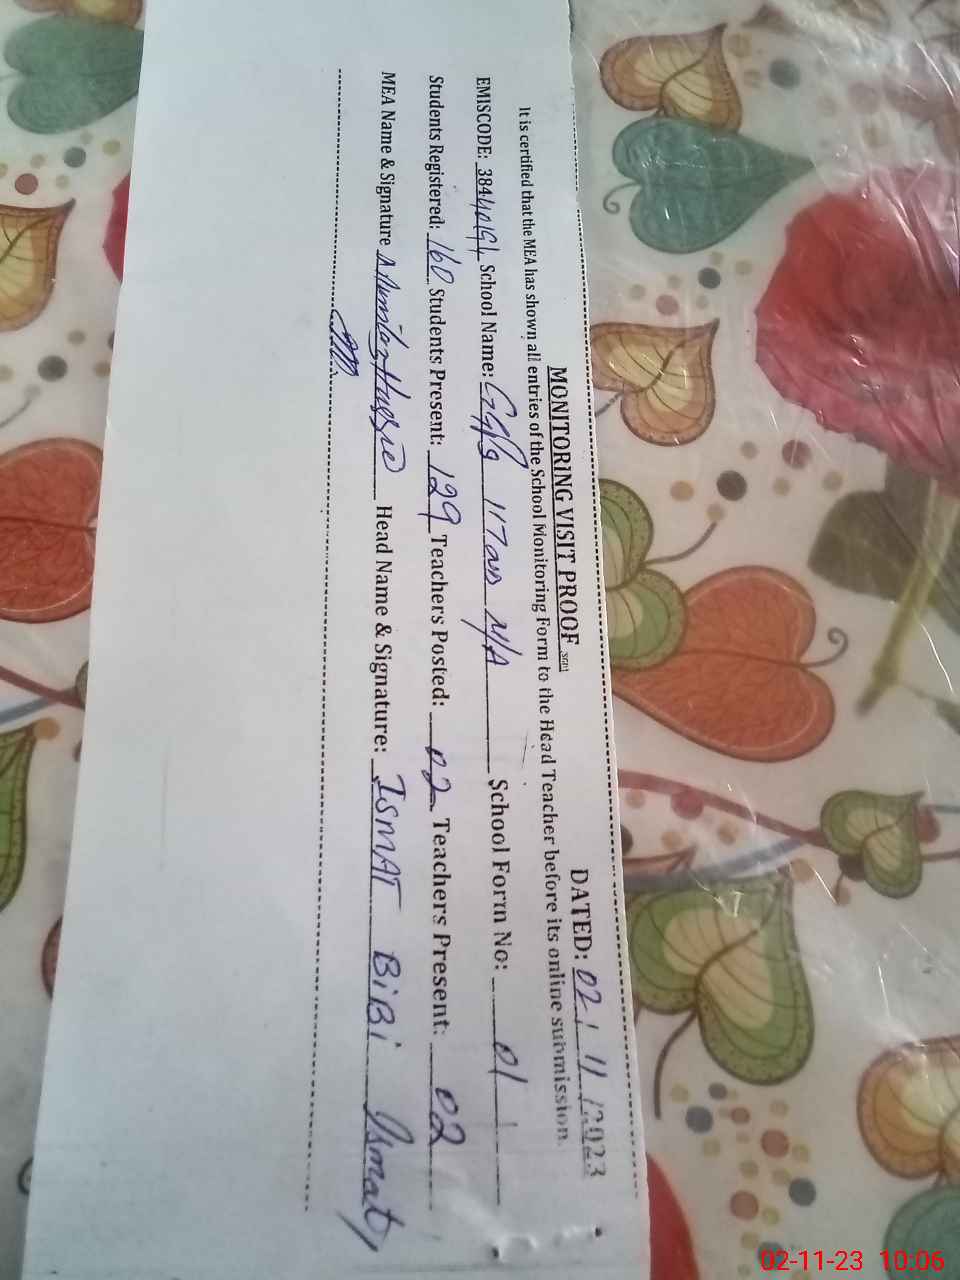 MONITORING VISIT PROOF DATED: 02/11/2023
It is certified that the MEA has shown all entries of the School Monitoring Form to the Head Teacher before its online submission.
EMISCODE: School Name: N/A School Form No: 01
Students Registered: 160 Students Present: 129 Teachers Posted: 02 Teachers Present: 02
MEA Name & Signature Head Name & Signature: ISMAT BiBi Ismat
02-11-23 10:06